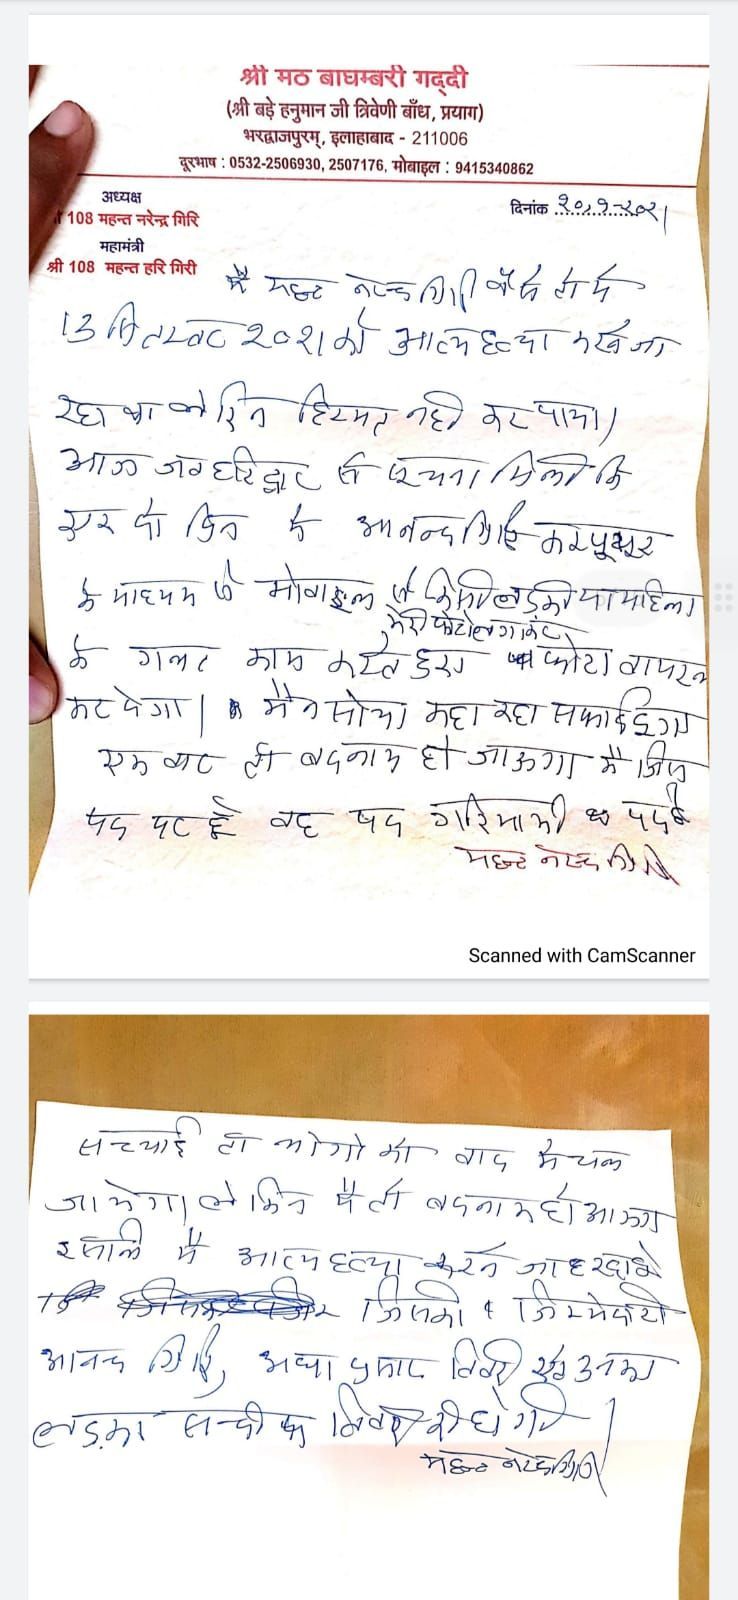 श्री मठ बाघम्बरी गद्दी
(श्री बड़े हनुमान जी त्रिवेणी बाँध, प्रयाग)
भरद्वाजपुरम्, इलाहाबाद - 211006
दूरभाष : 0532-2506930, 2507176, मोबाइल : 9415340862
अध्यक्ष
108 महन्त नरेन्द्र गिरि
महामंत्री
श्री 108 महन्त हरि गिरी
दिनांक
मै महन्त नरेन्द्र गिरि वैसे तो मै
13 सितम्बर 2021 को आत्म हत्या करने जा
रहा था लेकिन हिम्मत नही कर पाया।
आज जब हरिद्वार से सूचना मिली कि
एक दो दिन मे आनन्द गिरि कम्प्यूटर
के माध्यम से मोबाइल से किसी लड़की या महिला
मेरी फोटो लगाकर
के गलत काम करते हुए फोटो वायरल
कर देगा। मैने सोचा कहा तक सफाई दूंगा
एक बार तो बदनाम हो जाऊगा मै जिस
पद पर हूँ वह पद गरिमामयी पद है
महन्त नरेन्द्र गिरि
Scanned with CamScanner
सच्चाई तो लोगो को बाद मे चल
जायेगा लेकिन मै तो बदनाम हो जाऊगा
इसलिए मै आत्म हत्या करने जा रहा हूँ
जिसकी जिम्मेदारी
आनन्द गिरि, अद्या प्रसाद तिवारी एवं उनका
लड़का सन्दीप तिवारी की होगी।
महन्त नरेन्द्र गिरि